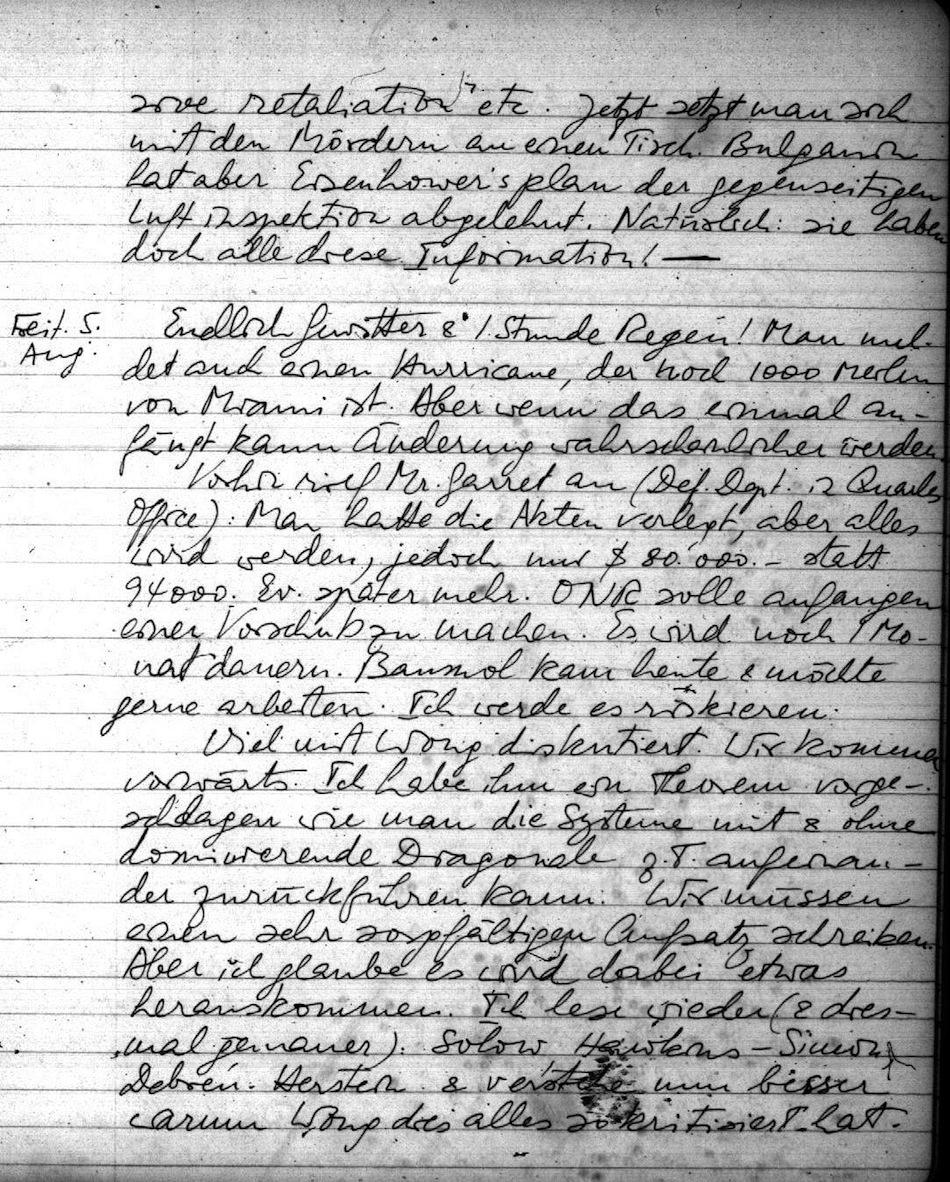 sive retaliation" etc. Jetzt setzt man sich
mit den Mördern an einen Tisch. Bulganin
hat aber Eisenhower's plan der gegenseitigen
Luftinspektion abgelehnt. Natürlich: sie haben
doch alle diese Information! —
Freit. 5. Aug.
Endlich Gewitter & 1 Stunde Regen! Man mel-
det auch einen Hurricane, der noch 1000 Meilen
von Miami ist. Aber wenn das einmal an-
fängt kann Änderung wahrscheinlicher werden
Vorhin rief Mr. Garret an (Def. Dept. in Quarles
Office): Man hatte die Akten verlegt, aber alles
wird werden, jedoch nur $ 80.000.– statt
94000. Ev. später mehr. ONR solle anfangen
einen Vorschuß zu machen. Es wird noch 1 Mo-
nat dauern. Baumol kam heute & möchte
gerne arbeiten. Ich werde es riskieren.
Viel mit Wong diskutiert. Wir kommen
vorwärts. Ich habe ihm ein Theorem vorge-
schlagen wie man die Systeme mit & ohne
dominierende Diagonale z.T. aufeinan-
der zurückführen kann. Wir müssen
einen sehr sorgfältigen Aufsatz schreiben.
Aber ich glaube es wird dabei etwas
herauskommen. Ich lese wieder (& dies-
mal genauer): Solow Hawkins – Simon,
Debreu. Herstein & verstehe nun besser
warum Wong dies alles so kritisiert hat.